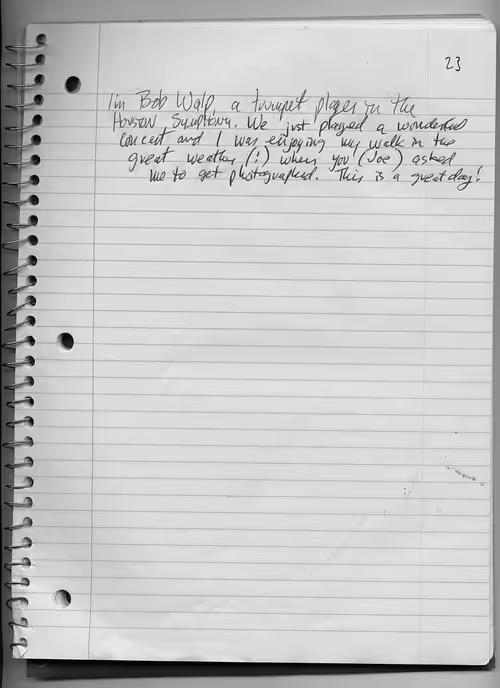 23
I'm Bob Walp, a trumpet player in the
Houston Symphony. We just played a wonderful
concert and I was enjoying my walk in the
great weather (!) when you (Joe) asked
me to get photographed. This is a great day!